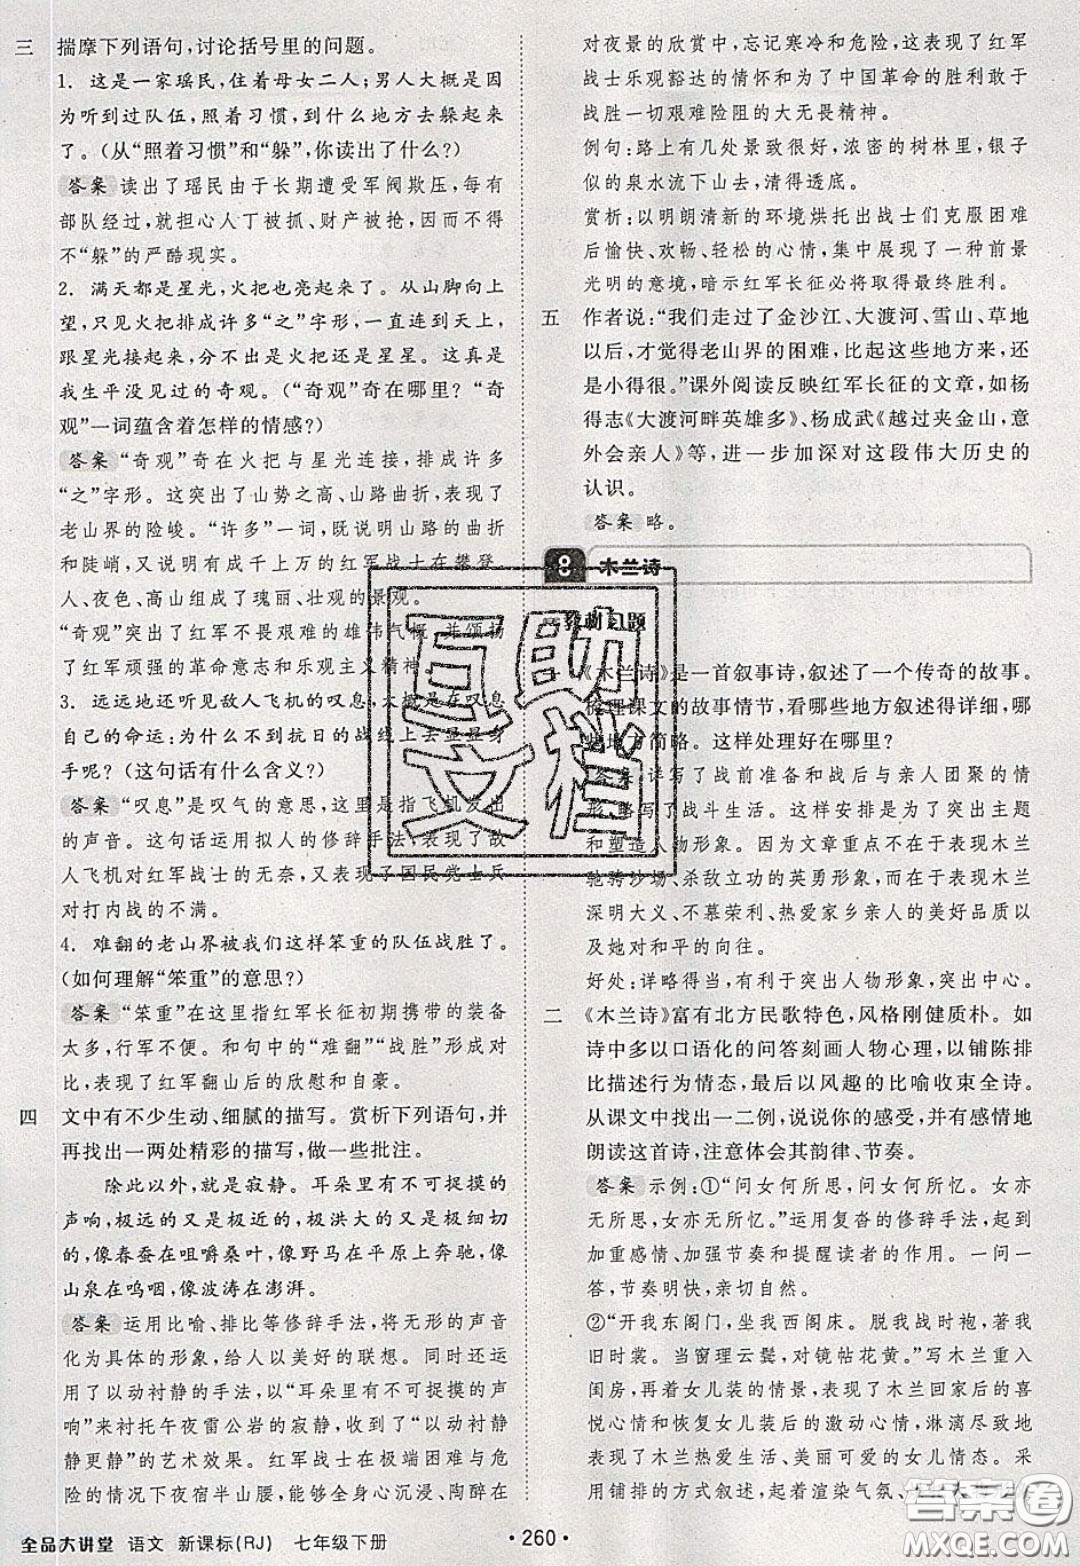 三 揣摩下列语句,讨论括号里的问题。
1. 这是一家瑶民,住着母女二人;男人大概是因
为听到过队伍,照着习惯,到什么地方去躲起来
了。(从“照着习惯”和“躲”,你读出了什么?)
答案 读出了瑶民由于长期遭受军阀欺压,每有
部队经过,就担心人丁被抓、财产被抢,而不得
不“躲”的严酷现实。
2. 满天都是星光,火把也亮起来了。从山脚向上
望,只见火把排成许多“之”字形,一直连到天上,
跟星光接起来,分不出是火把还是星星。这真是
我生平没见过的奇观。(“奇观”奇在哪里?“奇
观”一词蕴含着怎样的情感?)
答案 “奇观”奇在火把与星光连接,排成许多
“之”字形。这突出了山势之高、山路曲折,表现了
老山界的险峻。“许多”一词,既说明山路的曲折
和陡峭,又说明有成千上万的红军战士在攀登。
人、夜色、高山组成了瑰丽、壮观的景观。
“奇观”突出了红军不畏艰难的雄伟气概,并颂扬
了红军顽强的革命意志和乐观主义精神。
3. 远远地还听见敌人飞机的叹息,大概是在叹息
自己的命运:为什么不到抗日的战线上去显显身
手呢?(这句话有什么含义?)
答案 “叹息”是叹气的意思,这里是指飞机发出
的声音。这句话运用拟人的修辞手法,表现了敌
人飞机对红军战士的无奈,又表现了国民党士兵
对打内战的不满。
4. 难翻的老山界被我们这样笨重的队伍战胜了。
(如何理解“笨重”的意思?)
答案 “笨重”在这里指红军长征初期携带的装备
太多,行军不便。和句中的“难翻”“战胜”形成对
比,表现了红军翻山后的欣慰和自豪。
四 文中有不少生动、细腻的描写。赏析下列语句,并
再找出一两处精彩的描写,做一些批注。
除此以外,就是寂静。耳朵里有不可捉摸的
声响,极远的又是极近的,极洪大的又是极细切的,
像春蚕在咀嚼桑叶,像野马在平原上奔驰,像
山泉在呜咽,像波涛在澎湃。
答案 运用比喻、排比等修辞手法,将无形的声音
化为具体的形象,给人以美好的联想。同时又采
用了以动衬静的手法,以“耳朵里有不可捉摸的声响”
来衬托午夜雷公岩的寂静,收到了“以动衬
静静更静”的艺术效果。红军战士在极端困难与危
险的情况下夜宿半山腰,能够全身心沉浸、陶醉在
对夜景的欣赏中,忘记寒冷和危险,这表现了红军
战士乐观豁达的情怀和为了中国革命的胜利敢于
战胜一切艰难险阻的大无畏精神。
例句:路上有几处景致很好,浓密的树林里,银子
似的泉水流下山去,清得透底。
赏析:以明朗清新的环境烘托出战士们克服困难
后愉快、欢畅、轻松的心情,集中展现了一种前景
光明的意境,暗示红军长征必将取得最终胜利。
五 作者说:“我们走过了金沙江、大渡河、雪山、草地
以后,才觉得老山界的困难,比起这些地方来,还
小得很。”课外阅读反映红军长征的文章,如杨
得志《大渡河畔英雄多》、杨成武《越过夹金山,意
外会亲人》等,进一步加深对这段伟大历史的
认识。
答案 略。
8 木兰诗
教材习题
一 《木兰诗》是一首叙事诗,叙述了一个传奇的故事。
梳理课文的故事情节,看哪些地方叙述得详细,哪
些地方简略。这样处理好在哪里?
答案 详写了战前准备和战后与亲人团聚的情
形,略写了战斗生活。这样安排是为了突出主题
和塑造人物形象。因为文章重点不在于表现木兰
驰骋沙场、杀敌立功的英勇形象,而在于表现木兰
深明大义、不慕荣利、热爱家乡亲人的美好品质以
及她对和平的向往。
好处:详略得当,有利于突出人物形象,突出中心。
二 《木兰诗》富有北方民歌特色,风格刚健质朴。如
诗中多以口语化的问答刻画人物心理,以铺陈排
比描述行为情态,最后以风趣的比喻收束全诗。
从课文中找出一二例,说说你的感受,并有感情地
朗读这首诗,注意体会其韵律、节奏。
答案 示例:①“问女何所思,问女何所忆。女亦
无所思,女亦无所忆”。运用复沓的修辞手法,起到
加重感情、加强节奏和提醒读者的作用。一问一
答,节奏明快,亲切自然。
②“开我东阁门,坐我西阁床。脱我战时袍,著我
旧时裳。当窗理云鬓,对镜帖花黄。”写木兰重入
闺房,再着女儿装的情景,表现了木兰回家后的喜
悦心情和恢复女儿装后的激动心情,淋漓尽致地
表现了木兰热爱生活、美丽可爱的女儿情态。而且
采用铺排的方式叙述,起到了渲染气氛、
全品大讲堂 语文 新课标(RJ) 七年级下册
·260·
互助
文档
答案圈
MXQE.COM